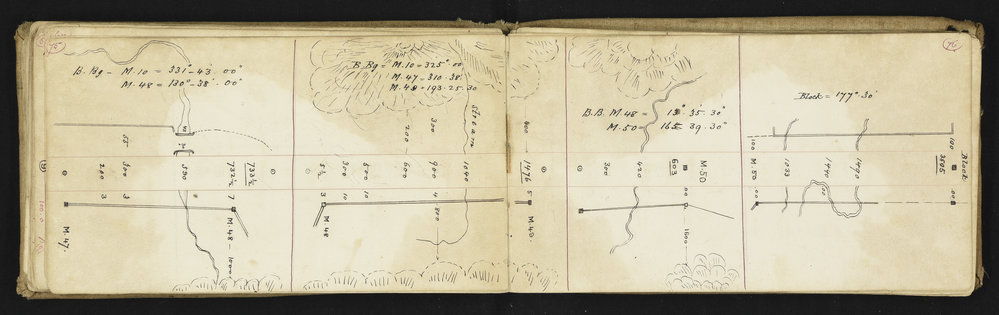 75
B. Bg – M.10 = 331° – 43'. 00"
M. 48 = 130° – 38'. 00"
55
200
300
530
732½
733½
3
3
7
M.47.
M.48 – 1000
B. Bg = M.10 = 325°. 00'
M. 47 = 310. 38'
M. 48 = 193. 25. 30
Stream
200
300
400
5½
300
500
600
900
1040
1476
3
10
10
4
800
5
M 48
M.49.
B.B. M. 48 = 13°. 35'. 30"
M. 50 = 165. 39. 30"
300
420
603
M.50
00
1500
76
Block = 177°. 30'
100
M. 50
1033
1440
1491
100
3505
Block
00